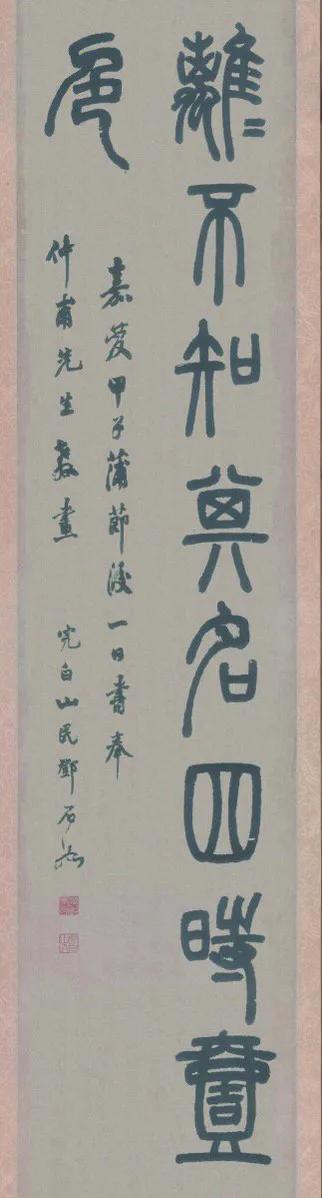 離〻不知其名四時壹
色
嘉慶甲子蒲節後一日書奉
仲甫先生教畫 完白山民鄧石如